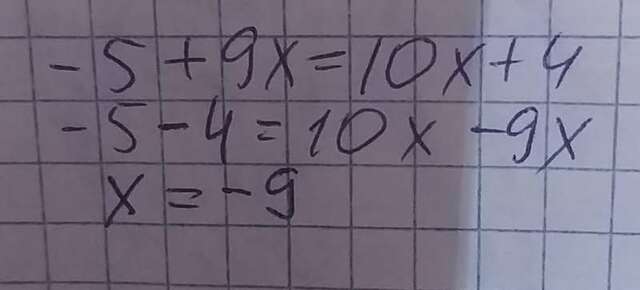 -5+9x=10x+4
-5-4=10x-9x
x=-9